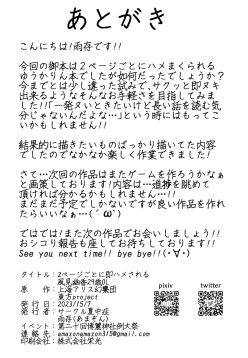 あとがき
こんにちは!雨存です!!
今回の御本は２ページごとにハメまくられる
ゆうかりん本でしたが如何だったでしょうか?
今までとは少し違った試みで、サクッと即ヌキ
出来るようなそんなお手軽さを目指してみま
した!!「一発ヌいときたいけど長い話を読む気
分じゃないんだよな…」という時にはもってこ
いかもしれません!!
結果的に描きたいものばっかり描いてた内容
でしたのでなかなか楽しく作業できました!
さて…次回の作品はまたゲームを作ろうかなぁ
と画策しております!内容は…進捗を眺めて
頂ければ分かるかもしれません…!!
まだまだ予定でしかないですが良い作品を作れ
たらいいなぁ…(´ω`)
ではでは!また次の作品でお会いしましょう!!
おシコリ報告も座してお待ちしております!!
See you next time!! bye bye!!(･∀･)
タイトル：2ページごとに即ハメされる
風見幽香29歳JL
原作：上海アリス幻樂団
東方project
発行日：2023/5/7
発行者：サークル夏中症
雨存(あまぞん)
イベント：第二十回博麗神社例大祭
連絡先：amazonamazon315@gmail.com
印刷会社：株式会社栄光
pixiv
twitter